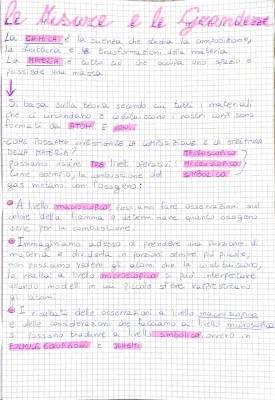 le Misure e le Grandezze
La CHIMICA è la scienza che studia la composizione,
la struttura e le trasformazioni della materia.
La MATERIA è tutto ciò che occupa uno spazio e
possiede una massa.
Si basa sulla teoria secondo cui tutti i materiali
che ci circondano e costituiscono i nostri corpi sono
formati da ATOMI E IONI.
COME POSSIAMO INVESTIGARE LA COMPOSIZIONE E LA STRUTTURA
DELLA MATERIA? MACROSCOPICO
possiamo usare TRE livelli operativi: MICROSCOPICO
come esempio, la combustione del SIMBOLICO
gas metano con l'ossigeno:
A livello macroscopico possiamo fare osservazioni sul
colore della fiamma e determinare quanto ossigeno
serve per la combustione.
Immaginiamo adesso di prendere una porzione di
materia e dividerla in porzioni sempre più piccole,
non possiamo vedere gli atomi che la costituiscono,
la realtà a livello microscopico si può interpretare
usando modelli in cui piccole sfere rappresentano
gli atomi.
I risultati delle osservazioni a livello macroscopico
e delle considerazioni che facciamo a livello microscopico
si possono tradurre a livello simbolico, ovvero in
FORMULE EQUAZIONI E